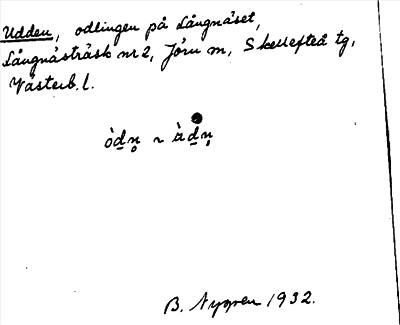 Udden, odlingen på Långnäset,
Långnästräsk nr 2, Jörn sn, Skellefteå tg,
Västerb. l.
òd̲n̥ ~ àd̲n̥
B. Nygren 1932.